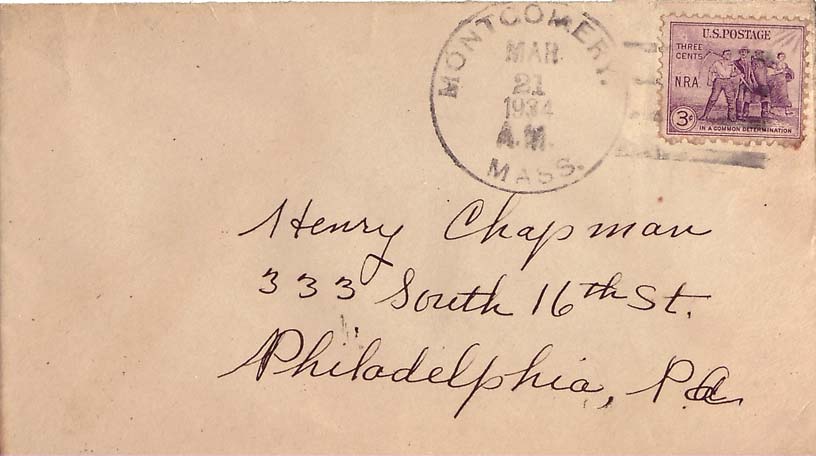 MONTGOMERY.
MAR
21
1934
A.M.
MASS.
U.S. POSTAGE
THREE
CENTS
N.R.A.
3¢
IN A COMMON DETERMINATION
Henry Chapman
333 South 16th St.
Philadelphia, Pa